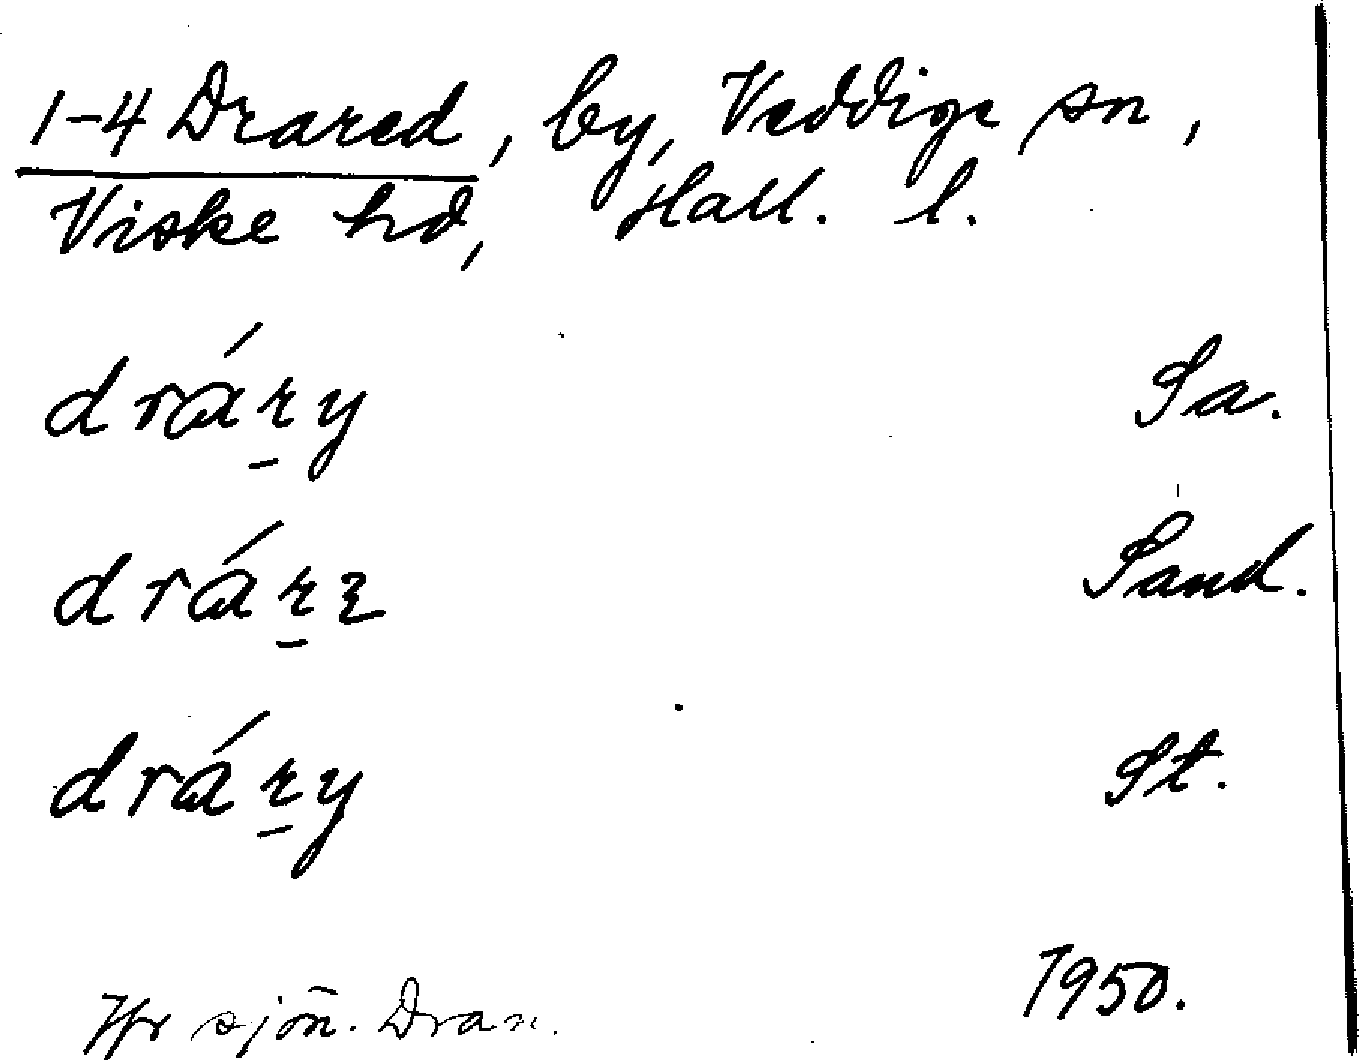 1-4 Drared, by, Veddige sn,
Viske hd, Hall. l.
dráry Sa.
drárɛ Sand.
dráry St.
1950.
Jfr sjön. Dran.